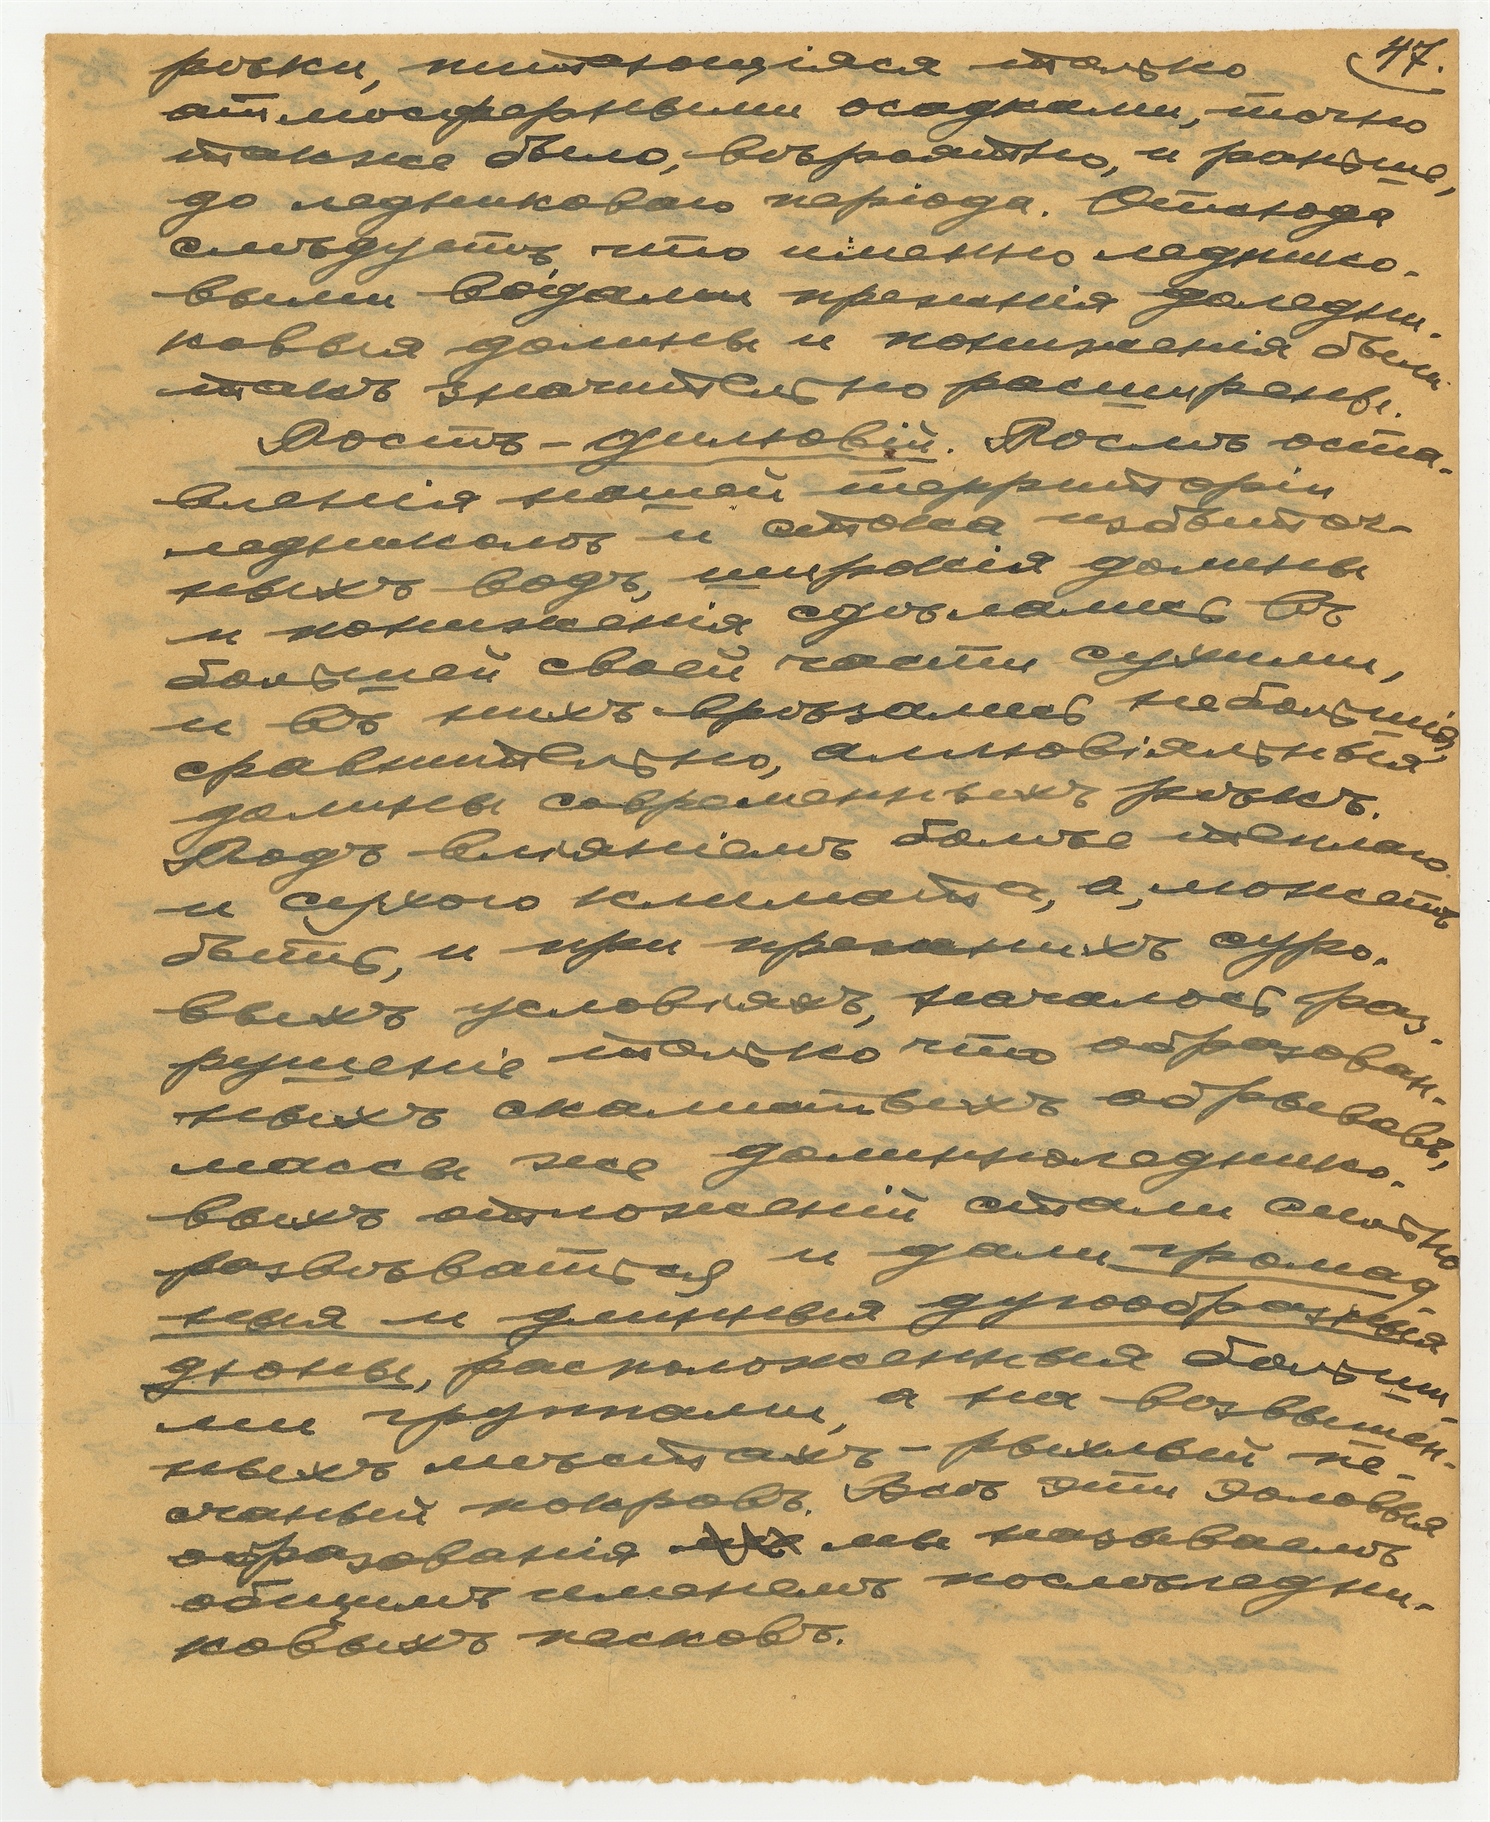 47.
рѣки, питающіяся только
атмосферными осадками, точно
также было, вѣроятно, и раньше,
до ледниковаго періода. Отсюда
слѣдуетъ что именно леднико-
выми водами прежнія доледни-
ковыя долины и пониженія были
такъ значительно расширены.
Постъ-дилювій. Послѣ оста-
вленія нашей территоріи
ледникомъ и стока избыточ-
ныхъ водъ, широкія долины
и пониженія сдѣлались въ
большей своей части сухими,
и въ нихъ врѣзались небольшія,
сравнительно, аллювіяльныя
долины современныхъ рѣкъ.
Подъ вліяніемъ болѣе теплаго
и сухого климата, а, можетъ
быть, и при прежнихъ суро-
выхъ условіяхъ, началось раз-
рушеніе только что образован-
ныхъ скалистыхъ обрывовъ,
массы же долинноледнико-
выхъ отложеній стали сильно
развѣваться и дали громад-
ныя и длинныя дугообразныя
дюны, расположенныя больши-
ми группами, а на возвышен-
ныхъ мѣстахъ - рыхлый пе-
счаный покровъ. Всѣ эти эоловыя
образованія мы называемъ
общимъ именемъ послѣледни-
ковыхъ песковъ.